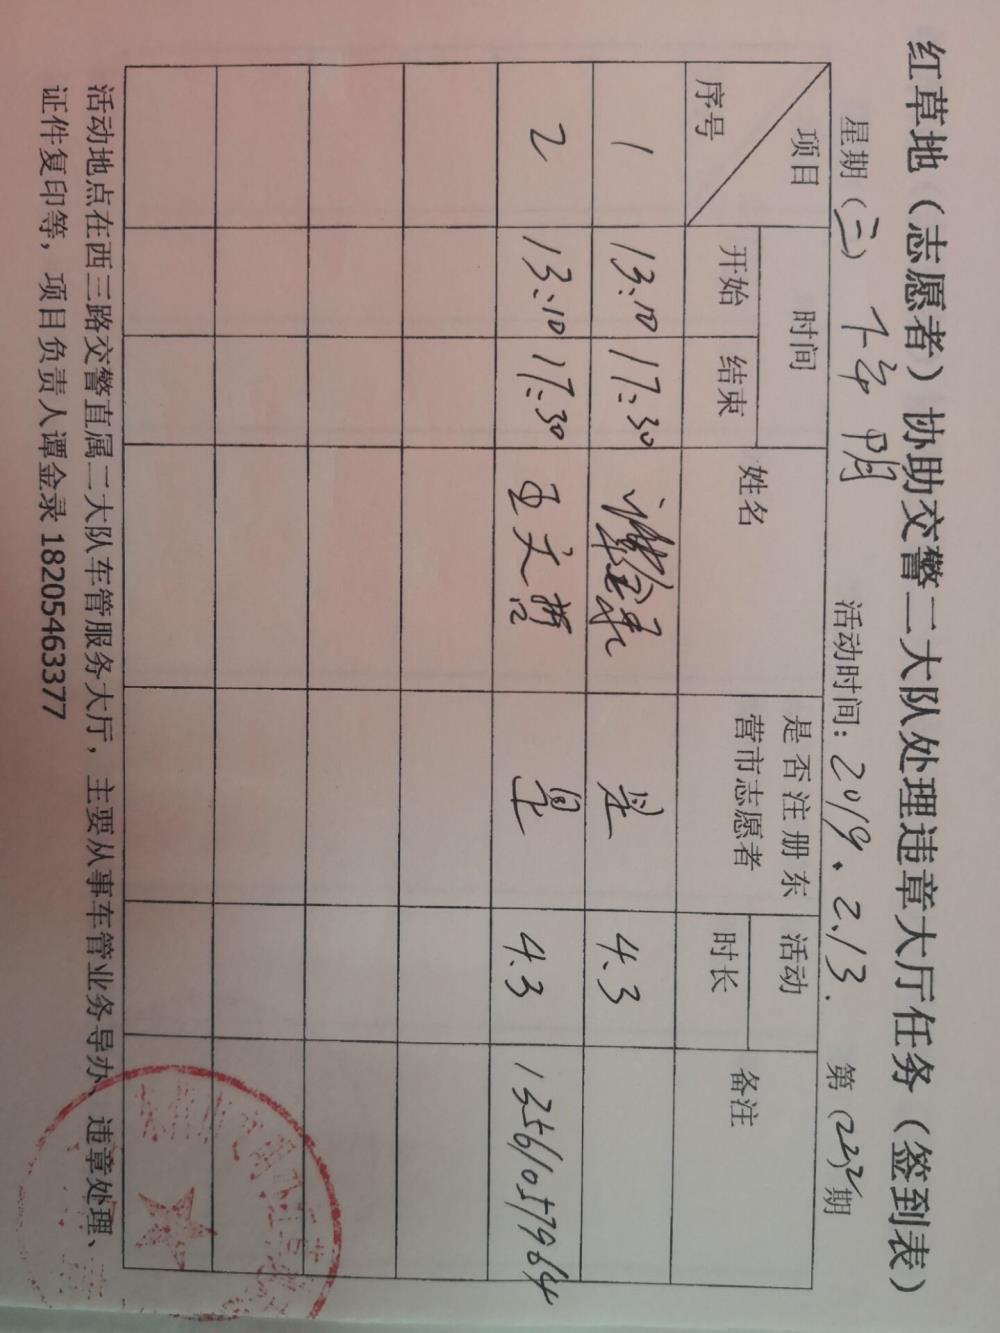 红草地（志愿者）协助交警二大队处理违章大厅任务（签到表）
星期（三） 下午 阴 活动时间：2019、2、13. 第（232）期
项目 序号 时间 姓名 是否注册东营市志愿者 活动时长 备注
开始 结束
1 13:10 17:30 谭金录 是 4.3
2 13:10 17:30 王文哲 是 4.3 13561057964
活动地点在西三路交警直属二大队车管服务大厅，主要从事车管业务导办、违章处理、
证件复印等，项目负责人谭金录 18205463377